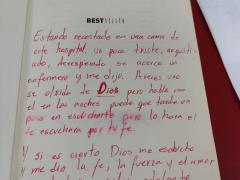 BESTSELLER
Estando recostado en una cama de
este hospital, un poco triste, angusti-
ado, desesperado se acerco un
enfermero y me dijo. A veces uno
se olvida de Dios pero habla con
el en las noches puede que tarde un
poco en escucharte pero lo hara el
te escuchara por tu fe.
Y si es cierto Dios me escucho
y me dio la fe, la fuerza y el amor